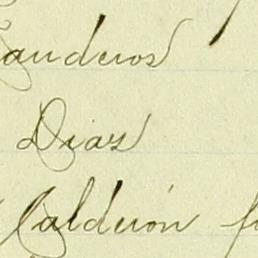 Landeros
Dias
Calderón